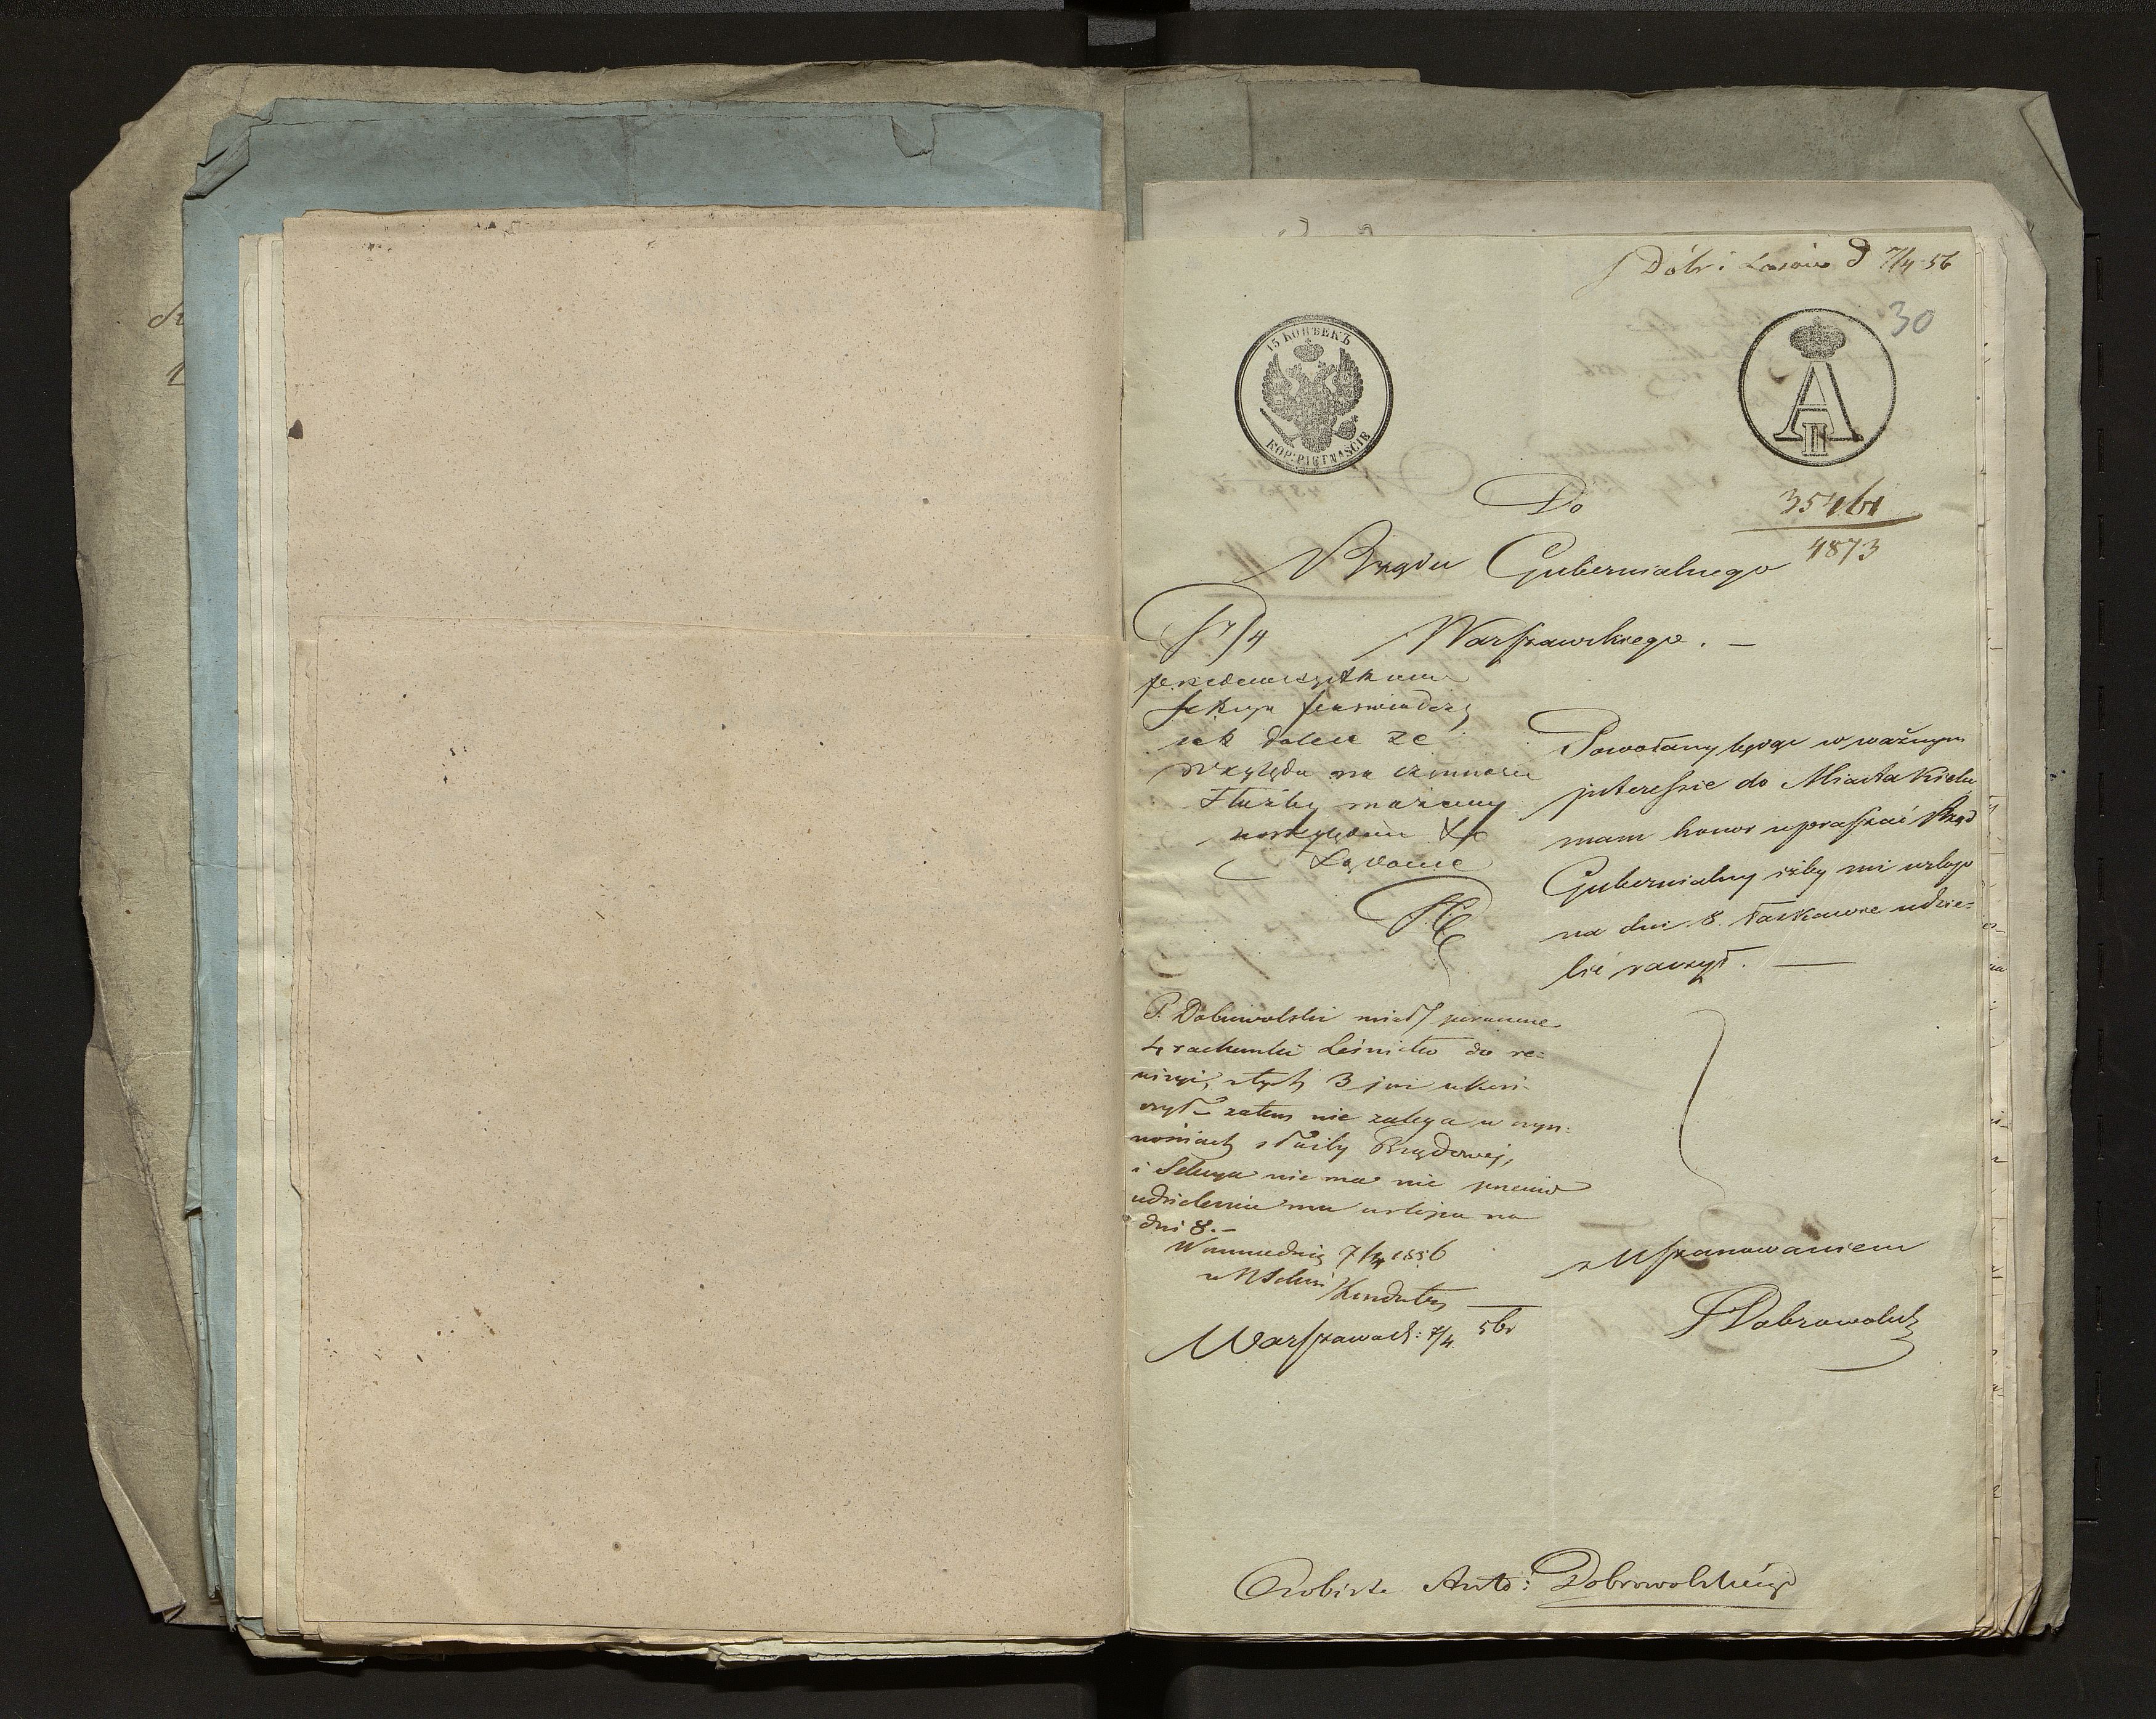 Dóbr i Lasów d 7/4 56
30
15 КОПѢЕКЪ
KOP: PIĘTNAŚCIE
A II
Do
35461
4873
Rządu Gubernialnego
Warszawskiego. —
7/4
przedewszystkiem
Sekcya poświadczy
jak dalece ze
względu na czynności
Służby możemy
uwzględnić
żądanie
Powołany będąc w ważnym
interessie do Miasta Kielc
mam honor upraszać Rząd
Gubernialny iżby mi urlop
na dni 8. łaskawie udzie=
lić raczył. —
P. Dobrowolski miał
4 rachunki Leśnictw do re=
wizyi, z tych 3 już ukoń=
czył – zatem nie zalega w czyn=
nościach służby Rządowej,
i Sekcya nie ma nic przeciw
udzieleniu mu urlopu na
dni 8. –
7/4 1856
Warszawa d: 7/4 56 r
z Uszanowaniem
Dobrowolski
Osobiste Anto: Dobrowolskiego